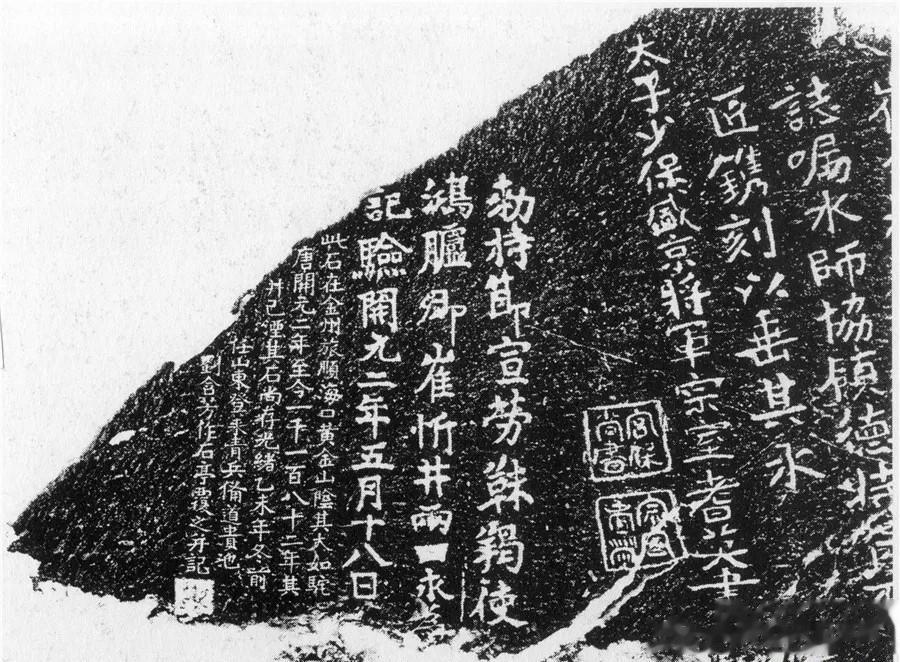 誌嘱水師協領德特賀
匠鐫刻以垂其永
太子少保盛京將軍宗室耆英書
宮保尚書
勅持節宣勞靺羯使
鴻臚卿崔忻井兩口永為
記驗開元二年五月十八日
此石在金州旅順海口黃金山陰其大如駝
唐開元二年至今一千一百八十二年其
井已湮其石尚存光緒乙未年冬前
任山東登萊青兵備道貴池
劉含芳作石亭覆之并記